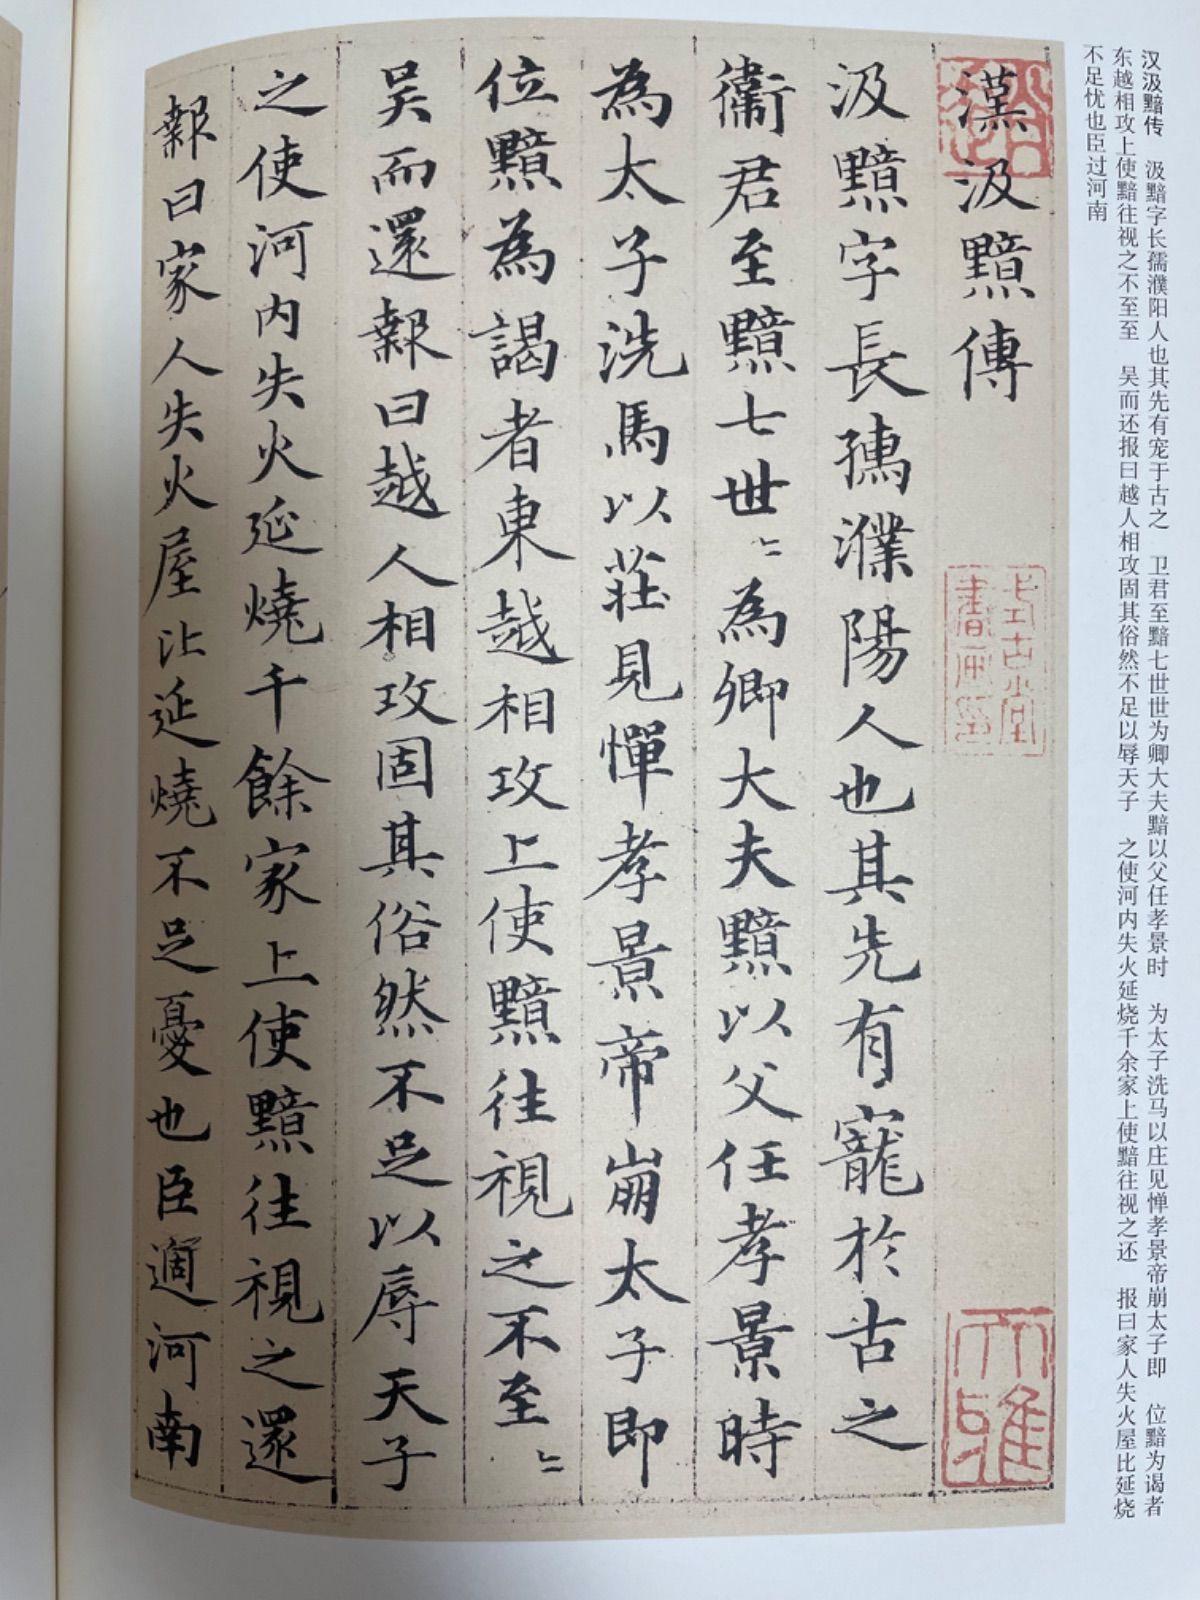 汉汲黯传 汲黯字长孺濮阳人也其先有宠于古之 卫君至黯七世世为卿大夫黯以父任孝景时 为太子洗马以庄见惮孝景帝崩太子即 位黯为谒者
东越相攻上使黯往视之不至至 吴而还报曰越人相攻固其俗然不足以辱天子 之使河内失火延烧千余家上使黯往视之还 报曰家人失火屋比延烧
不足忧也臣过河南
漢汲黯傳
汲黯字長孺濮陽人也其先有寵於古之
衛君至黯七世〻為卿大夫黯以父任孝景時
為太子洗馬以莊見憚孝景帝崩太子即
位黯為謁者東越相攻上使黯往視之不至〻
吴而還報曰越人相攻固其俗然不足以辱天子
之使河内失火延燒千餘家上使黯往視之還
報曰家人失火屋比延燒不足憂也臣過河南